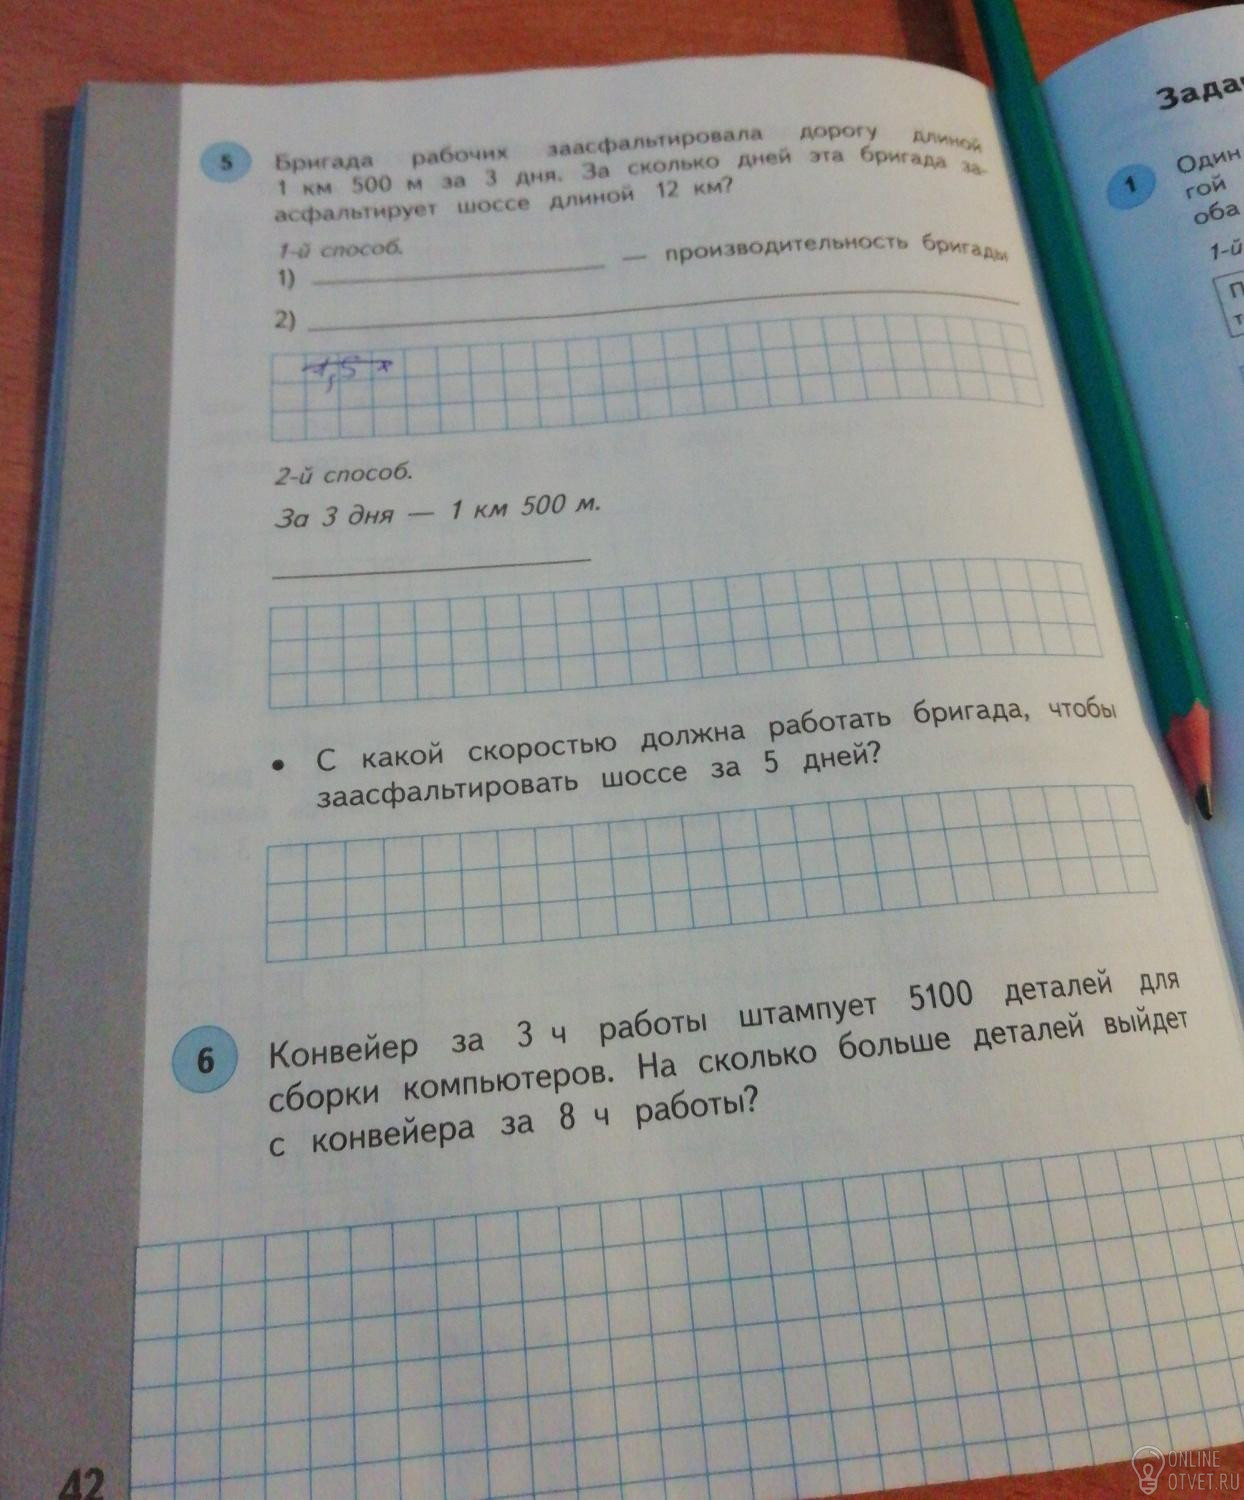 5 Бригада рабочих заасфальтировала дорогу длиной
1 км 500 м за 3 дня. За сколько дней эта бригада за-
асфальтирует шоссе длиной 12 км?
1-й способ.
1) — производительность бригады
2)
1,5
2-й способ.
За 3 дня — 1 км 500 м.
• С какой скоростью должна работать бригада, чтобы
заасфальтировать шоссе за 5 дней?
6 Конвейер за 3 ч работы штампует 5100 деталей для
сборки компьютеров. На сколько больше деталей выйдет
с конвейера за 8 ч работы?
42
Зада
1 Один
гой
оба
1-й
П
т
ONLINE
OTVET.RU